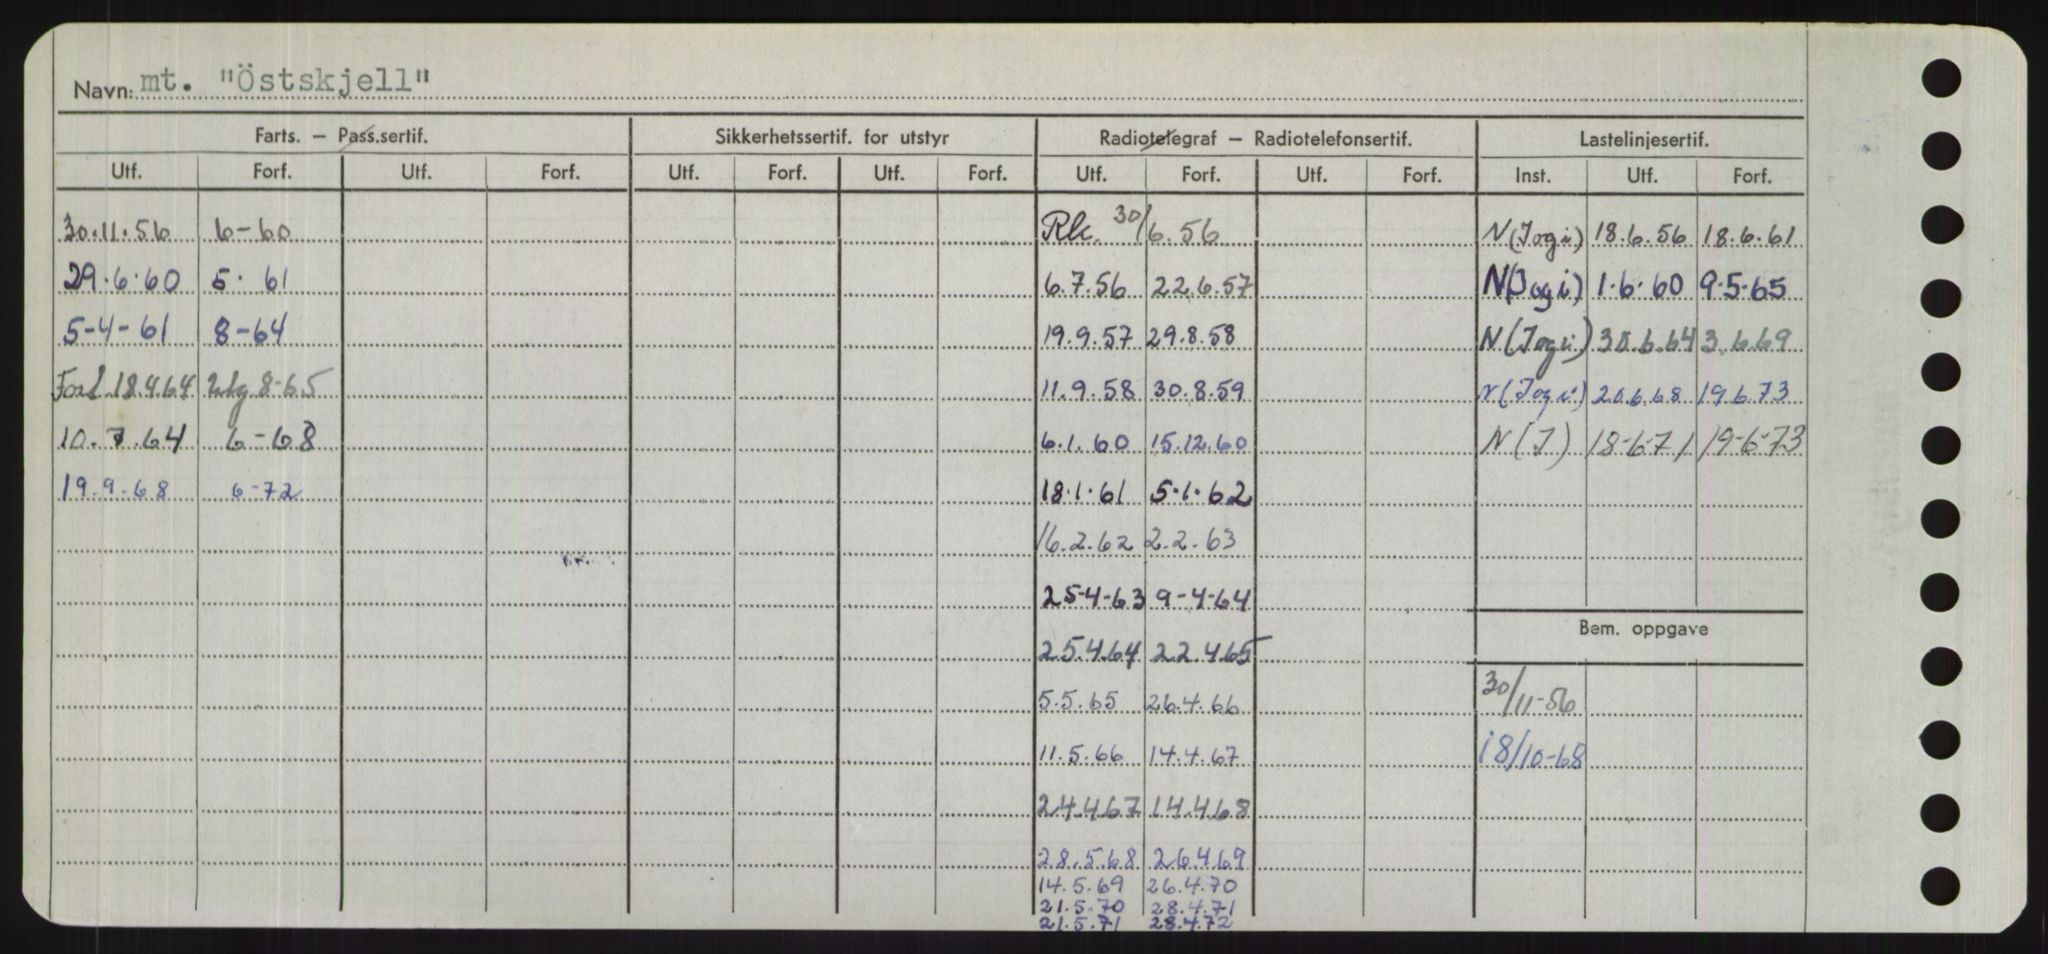 Navn: mt. "Östskjell"
Farts. — Pass.sertif. Sikkerhetssertif. for utstyr Radiotelegraf — Radiotelefonsertif. Lastelinjesertif.
Utf. Forf. Utf. Forf. Utf. Forf. Utf. Forf. Utf. Forf. Utf. Forf. Inst. Utf. Forf.
30.11.56 6-60 Rk. 30/6.56 N(Iogi) 18.6.56 18.6.61
29.6.60 5. 61 6.7.56 22.6.57 N(Iogi) 1.6.60 9.5.65
5-4-61 8-64 19.9.57 29.8.58 N(Iogi) 30.6.64 3.6.69
Forl. 18.4.64 utg 8-65 11.9.58 30.8.59 N(Iogi) 20.6.68 19.6.73
10.7.64 6-68 6.1.60 15.12.60 N(I) 18-6-71 19-6-73
19.9.68 6-72 18.1.61 5.1.62
16.2.62 2.2.63
25-4-63 9-4-64
Bem. oppgave
25.4.64 22.4.65
5.5.65 26.4.66 30/11-56
11.5.66 14.4.67 18/10-68
24.4.67 14.4.68
28.5.68 26.4.69
14.5.69 26.4.70
21.5.70 28.4.71
21.5.71 28.4.72